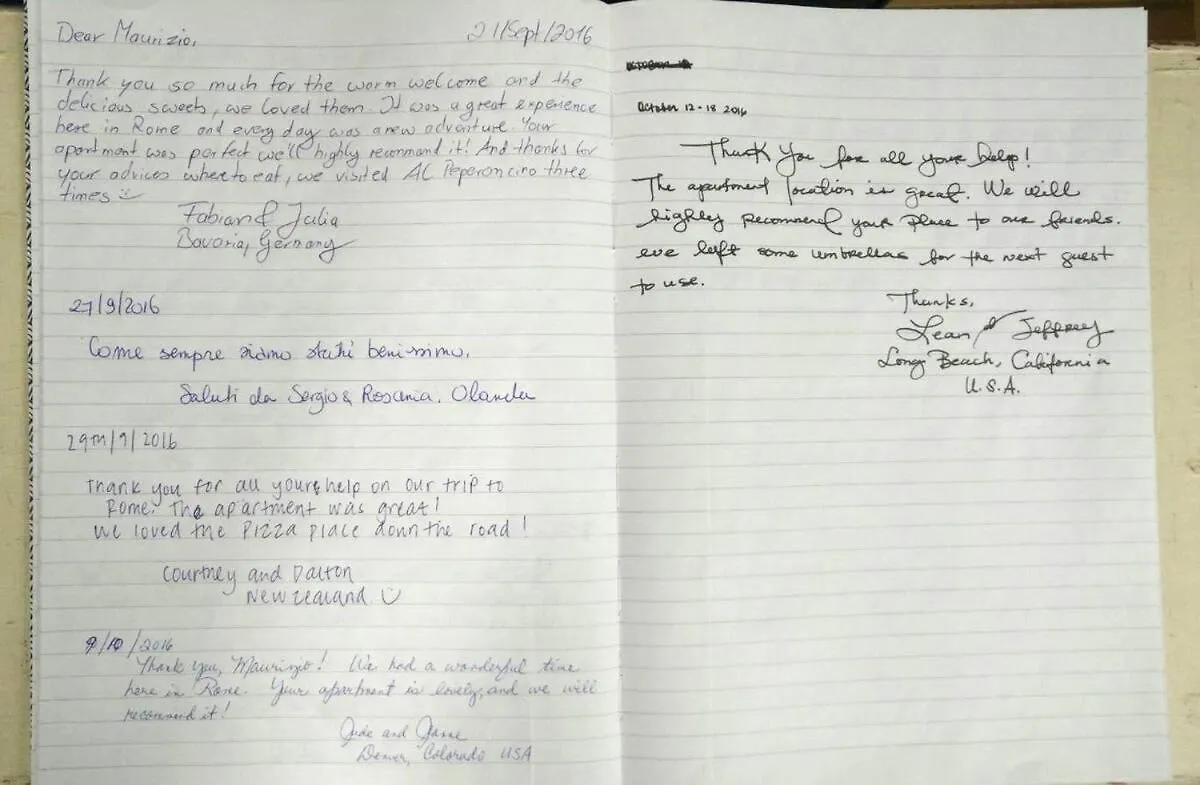 Dear Maurizio,
21/Sept/2016
Thank you so much for the warm welcome and the
delicious sweets, we loved them. It was a great experience
here in Rome and every day was a new adventure. Your
apartment was perfect we'll highly recommend it! And thanks for
your advices where to eat, we visited AL Peperoncino three
times
Fabian & Julia
Bavaria, Germany
27/9/2016
Come sempre siamo stati benissimo.
Saluti da Sergio & Rosania, Olanda
29TH/9/2016
Thank you for all your help on our trip to
Rome. The apartment was great!
We loved the Pizza place down the road!
Courtney and Dalton
New Zealand
9/10/2016
Thank you, Maurizio! We had a wonderful time
here in Rome. Your apartment is lovely, and we will
recommend it!
and
Denver, Colorado USA
October 12-18 2016
Thank You for all your help!
The apartment location is great. We will
highly recommend your place to our friends.
We left some umbrellas for the next guest
to use.
Thanks,
Lean & Jeffrey
Long Beach, California
U.S.A.